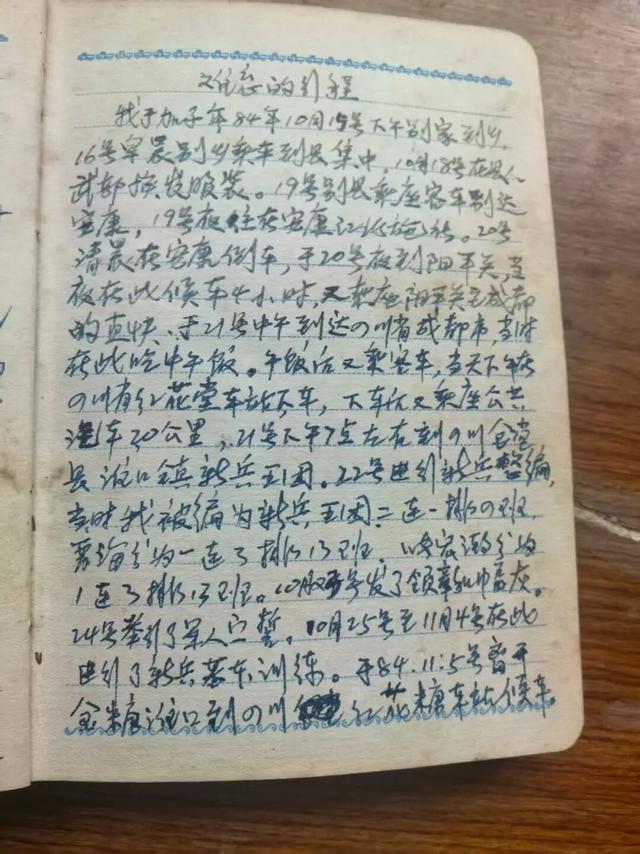 难忘的引程
我于加子年84年10月15号下午别家到乡，
16号早晨别乡乘车到县集中，10月18号在县人
武部换发服装。19号别县乘座客车到达
安康，19号夜住在安康江北施站。20号
清晨在安康倒车，于20号夜到阳平关，当
夜在此候车4小时，又乘座阳平关至成都
的直快、于21号中午到达四川省成都市，当时
在此吃中午饭。午饭后又乘客车，当天下午在
四川省红花堂车站下车，下车后又乘座公共
汽车30公里，21号下午7点左右到四川金堂
县淮口镇新兵王团。22号进引新兵整编，
当时我被编为新兵王团二连一排四班，
分为一连3排13班，分为
1连3排13班。10月号发了领章和巾盖灰。
24号举引了军人宣誓。10月25号至11月4号在此
进引了新兵基本训练。于84.11:5号离开
金糖淮口到四川红花糖车站候车。